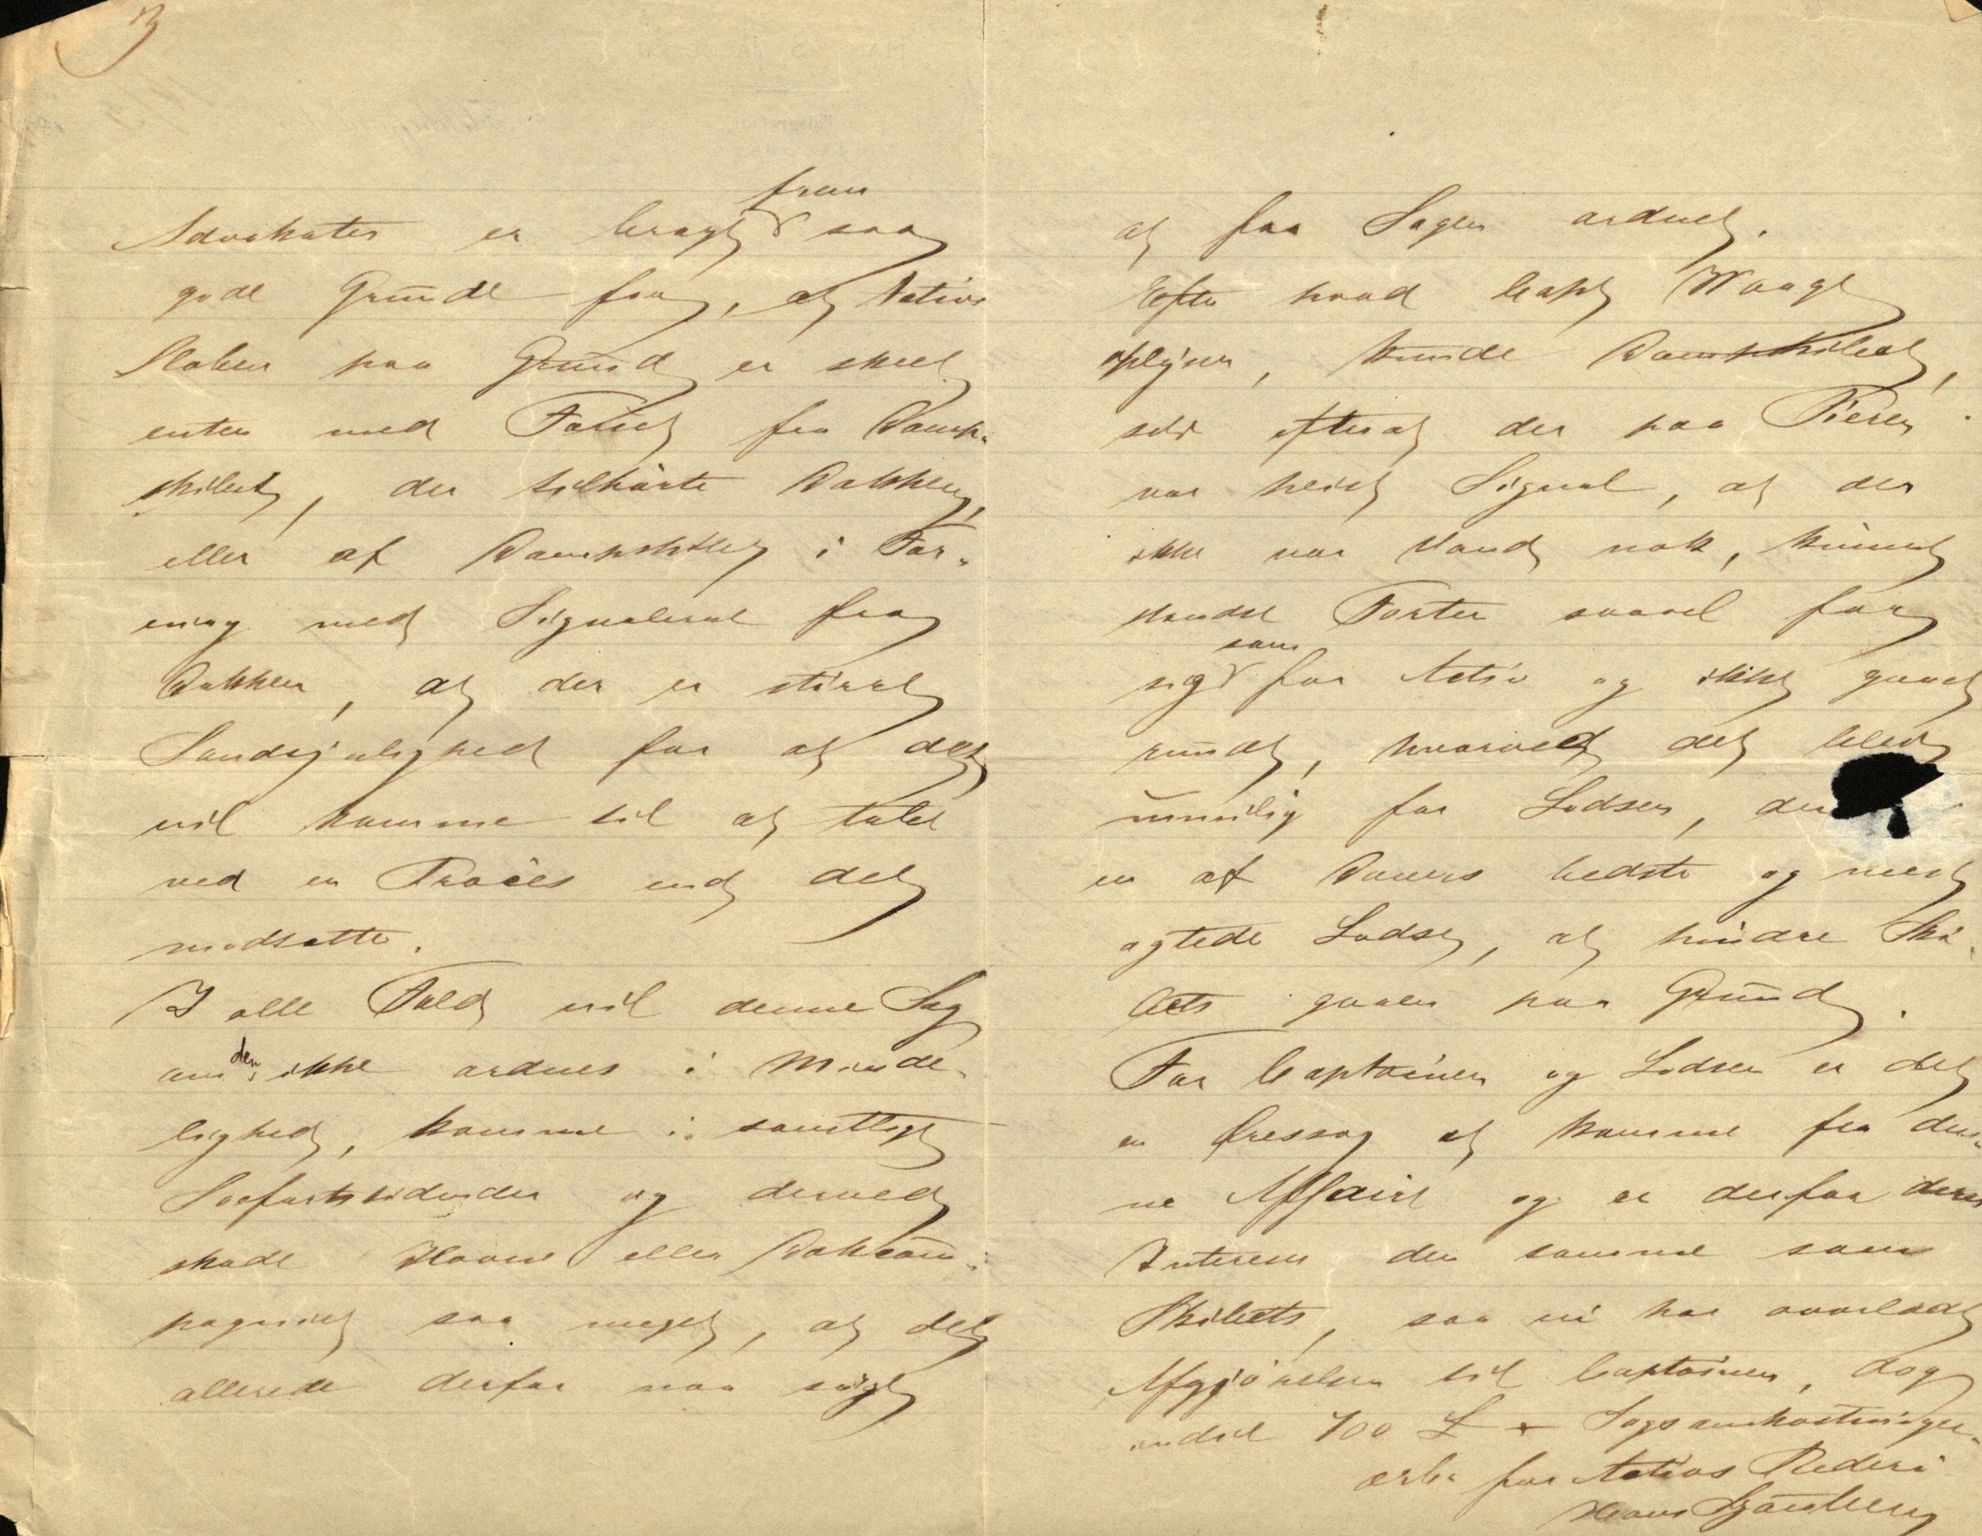 3
fram
Advokaten er bragt saa
gode Grunde for, at Activs
Støden paa Grund er skeet
enten med Forset fra Damp-
skibet, der tilhørte Dokken,
eller af Dampskibet i For-
ening med Signaleren fra
Dokken, at der er større
Sandsynlighed for at dette
vil komme til at tabe
ved en Proces end det
modsatte.
I alle Fald vil denne Sag
om den ikke ordnes i Minde-
lighed, komme i samtligt
Søfartstidender og derved
skade Havne eller Dokcom-
pagniet saa meget, at det
allerede derfor maa søge
at faa Sagen ordnet.
Efter hvad Capt Waage
oplyser, kunde Dampskibet,
selv efterat der paa Pieren
var heist Signal, at der
ikke var Vand nok, kunnet
standse Farten saavel for
som
sig for Activ og ikke gaaet
rundt, hvorved det blev
umulig for Lodsen, der
en af Dovers bedste og mest
agtede Lodser, at hindre Ski-
bets gaaen paa Grund.
For Captainen og Lodsen er det
en Æressag at komme fra den-
ne Affaire og er derfor deres
Interesse den samme som
Skibets, saa vi har overladt
Afgjørelsen til Captainen, dog
indtil 700 £ + Sagsomkostninger.
ærb. for Activs Rederi
Hans